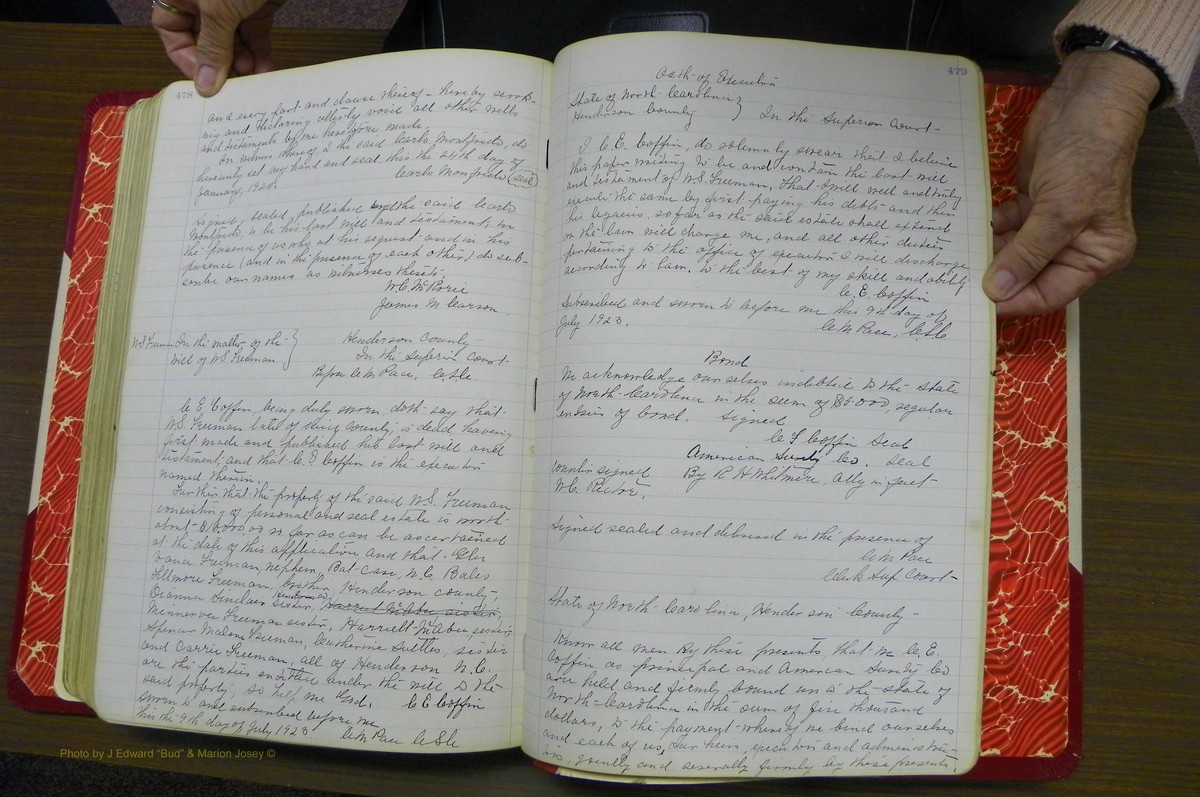 478
and every part and clause thereof - hereby revok-
ing and declaring utterly void all other wills
and testaments by me heretofore made.
In witness whereof, I the said Carlo Monfredo, do
hereunto set my hand and seal this the 24th day of
January, 1920. Carlo Monfredo (seal)
Signed, sealed, published the said Carlo
Monfredo, to be his last will and testament, in
the presence of us who at his request and in his
presence (and in the presence of each other) do sub-
scribe our names as witnesses thereto.
W.C. McRorie
James M. Carson,
WS Freeman In the matter of the } Henderson County
Will of W.S. Freeman In the Superior Court
Before C.M. Pace, C.S.C.
C.E. Coffin, being duly sworn doth say that
W.S. Freeman late of said County, is dead having
first made and published his last will and
testament, and that C.E. Coffin is the executor
named therein.
Further that the property of the said W.S. Freeman
consisting of personal and real estate is worth
about so far as can be ascertained
at the date of this application and that
Vance Freeman, nephew, Bat Cave, N.C. Bales
Fillmore Freeman, brother, Henderson County,
Dianna Sinclair sister, Harriet McAbee sister,
Minnerva Freeman sister, Harriett McAbee sister
Spencer Malone Freeman, Catherine Suttles, sister
and Carrie Freeman, all of Henderson N.C.
are the parties entitled under the will to the
said property, So help me God. C E Coffin
Sworn to and subscribed before me
this the 9th day of July 1923 C.M. Pace C.S.C.
479
Oath of Executor
State of North Carolina }
Henderson County } In the Superior Court-
I, C.E. Coffin, do solemnly swear that I believe
this paper writing to be and contain the last will
and testament of W.S. Freeman, that I will well and truly
execute the same by first paying his debts and then
his legacies, so far as the said estate shall extend
or the law will charge me, and all other duties
pertaining to the office of executor I will discharge
according to law, to the best of my skill and ability.
C.E. Coffin
Subscribed and sworn to before me this 9th day of
July 1923. C.M. Pace, C.S.C.
Bond
We acknowledge ourselves indebted to the State
of North Carolina in the sum of $5.000, regular
of bond. Signed
C E Coffin Seal
American Surety Co. Seal
Countersigned By R H Whitmire, Atty in fact
W.C. Rector,
Signed sealed and delivered in the presence of
C.M. Pace
Clerk Sup Court-
State of North Carolina, Henderson County-
Know all men By these presents, that we C.E.
Coffin as principal and American Surety Co
are held and firmly bound unto the State of
North Carolina in the sum of five thousand
dollars, to the payment whereof we bind ourselves
and each of us, our heirs, executors and administra-
tors, jointly and severally firmly by these presents,
Photo by J Edward "Bud" & Marion Josey ©